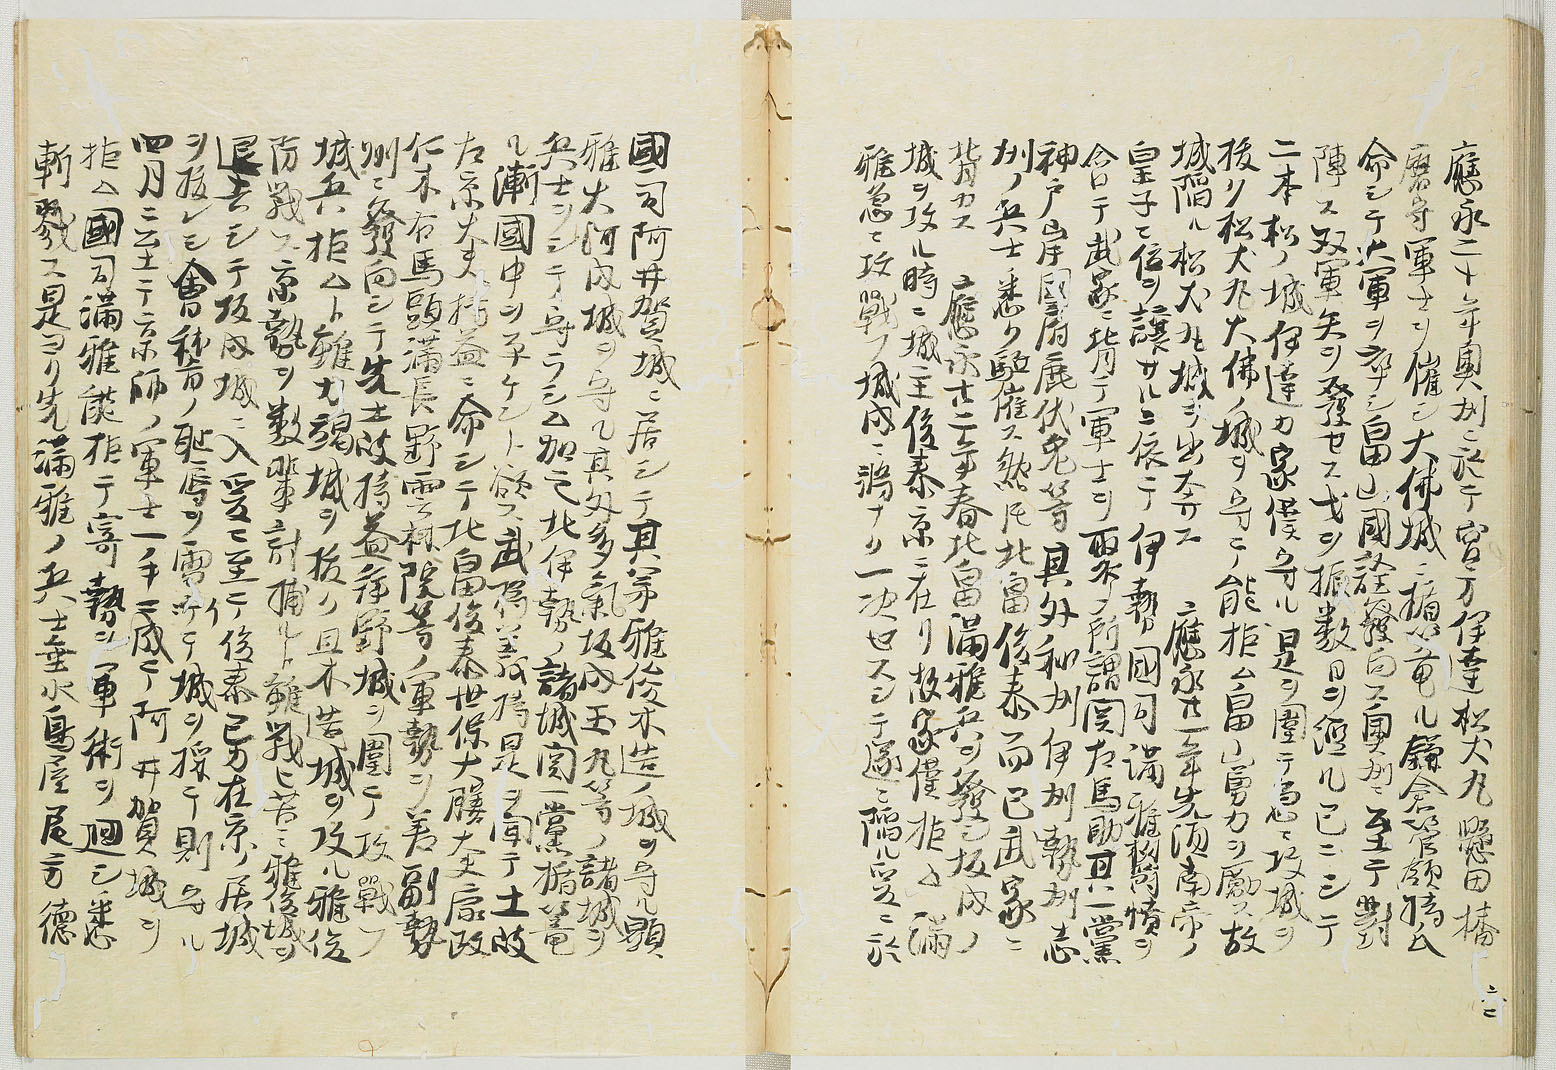 應永二十年奥州ニ於テ宮方伊達松犬丸懸田播
磨守軍士ヲ催シ大佛城ニ楯篭ル鎌倉管領持氏
命シテ大軍ヲ率シ畠山國詮發向ス奥州ニ至テ對
陣ス双軍矢ヲ發セス戈ヲ振数日ヲ經ル已ニシテ
二本松ノ城伊達カ家僕守ル是ヲ圍テ急ニ攻城ヲ
抜リ松犬丸大佛ノ城ヲ守テ能拒ム畠山勇力ヲ勵ス故
城陥ル松犬丸城ヲ出奔ス 應永廿一年先須南帝ノ
皇子ニ位ヲ譲サルニ依テ伊勢國司満雅欝憤ヲ
含テ武家ニ背テ軍士ヲ聚ノ所謂関左馬助其一黨
神戸岸國府鹿伏兎等其外和州伊州勢州志
州ノ兵士悉ク駈催ス然圧北畠俊泰而已武家ニ
背カス 應永廿二年春北畠満雅兵ヲ發シ坂成ノ
城ヲ攻ル時ニ城主俊泰京ニ在リ故家僅拒ム満
雅急ニ攻戰フ城成ニ溺ナリ一决セスシテ遂ニ陥ル爰ニ於
國司阿井賀城ニ居シテ其弟雅俊木造ノ城ヲ守ル顕
雅大河成城ヲ守ル其外多氣坂成玉丸等ノ諸城ヲ
兵士ヲシテ守ラシム加之北伊勢ノ諸城関一黨楯篭
ル漸國中ヲ平ケント欲ス武将義持是ヲ聞テ土岐
左京大夫持益ニ命シテ北畠俊泰世保大膳大夫康政
仁木右馬頭満長野雲林院等ノ軍勢ヲ差副勢
州ニ發向シテ先土岐持益拝野城ヲ圍テ攻戰フ
城兵拒ムト雖力弱城ヲ抜リ且木造城ヲ攻ル雅俊
防戰ス京勢ヲ数輩討捕ルト雖戰ヒ苦ミ雅俊城ヲ
退去シテ坂成城ニ入爰ニ至テ俊泰已カ在京ノ居城
ヲ抜レシ會稽ノ耻辱ヲ雪行テ城ヲ授テ則守ル
四月ニ至テ京師ノ軍士一手ニ成テ阿井賀城ヲ
拒ム國司満雅能拒テ寄勢ヲ軍術ヲ廻シ悉
斬戮ス是ヨリ先満雅ノ兵士垂水鳥屋尾方徳